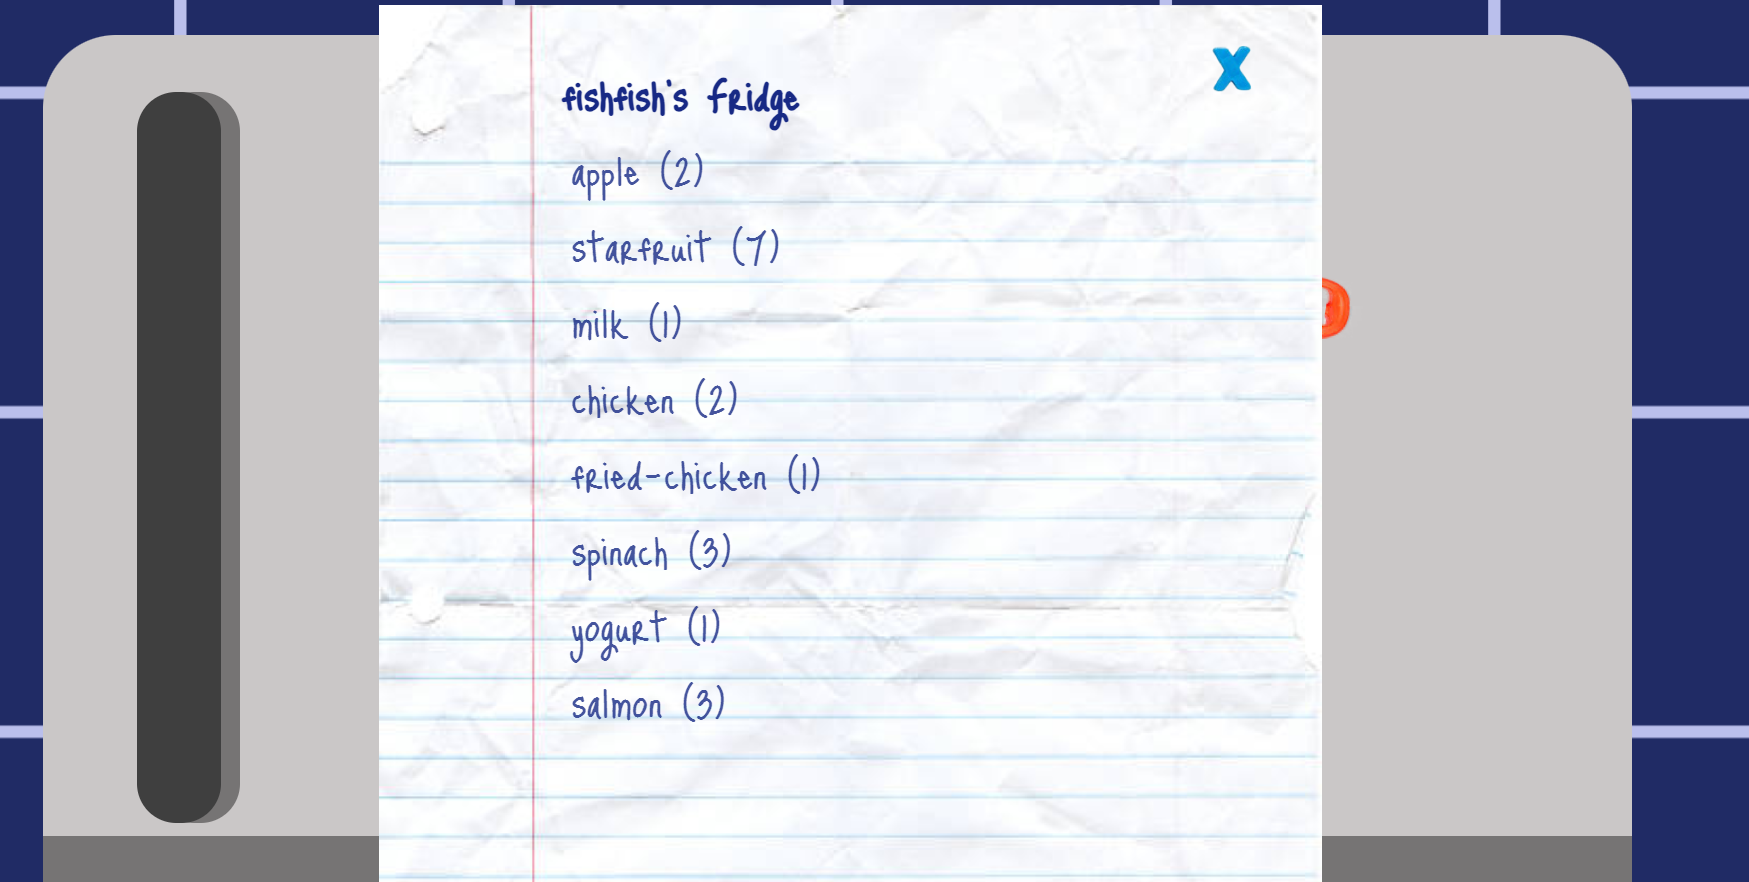 X
fishfish's fridge
apple (2)
starfruit (7)
milk (1)
chicken (2)
fried-chicken (1)
spinach (3)
yogurt (1)
salmon (3)